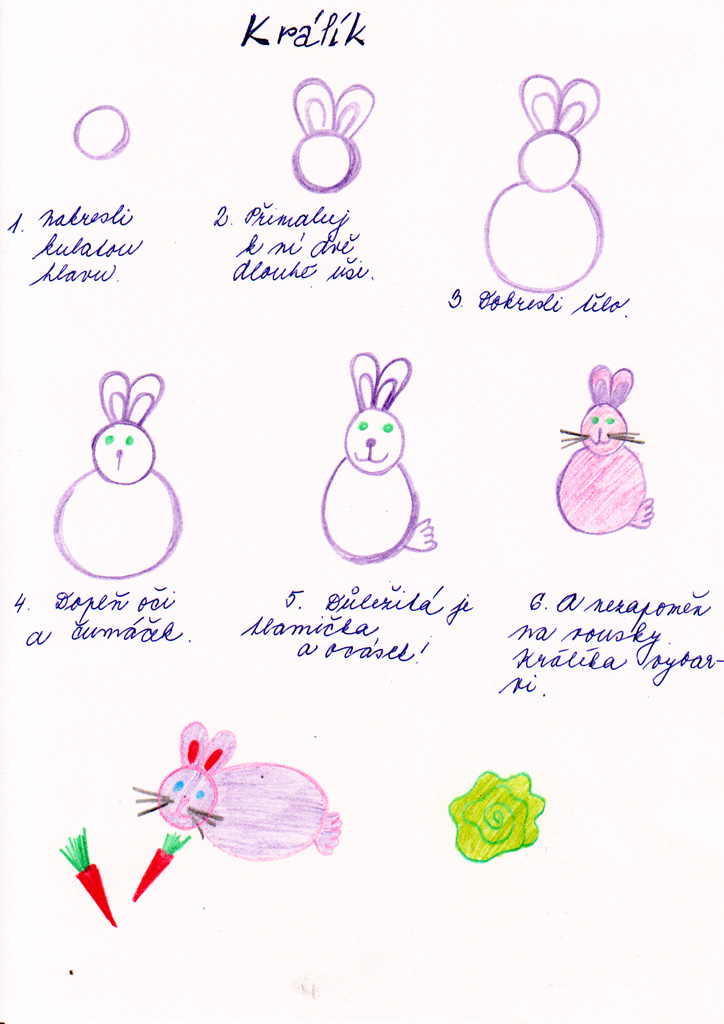 Králík
1. Nakresli
kulatou
hlavu.
2. Přimaluj
k ní dvě
dlouhé uši.
3. Dokresli tělo.
4. Doplň oči
a čumáček.
5. Důležitá je
tlamička
a ocásek!
6. A nezapomeň
na vousky.
Králíka vybar-
vi.